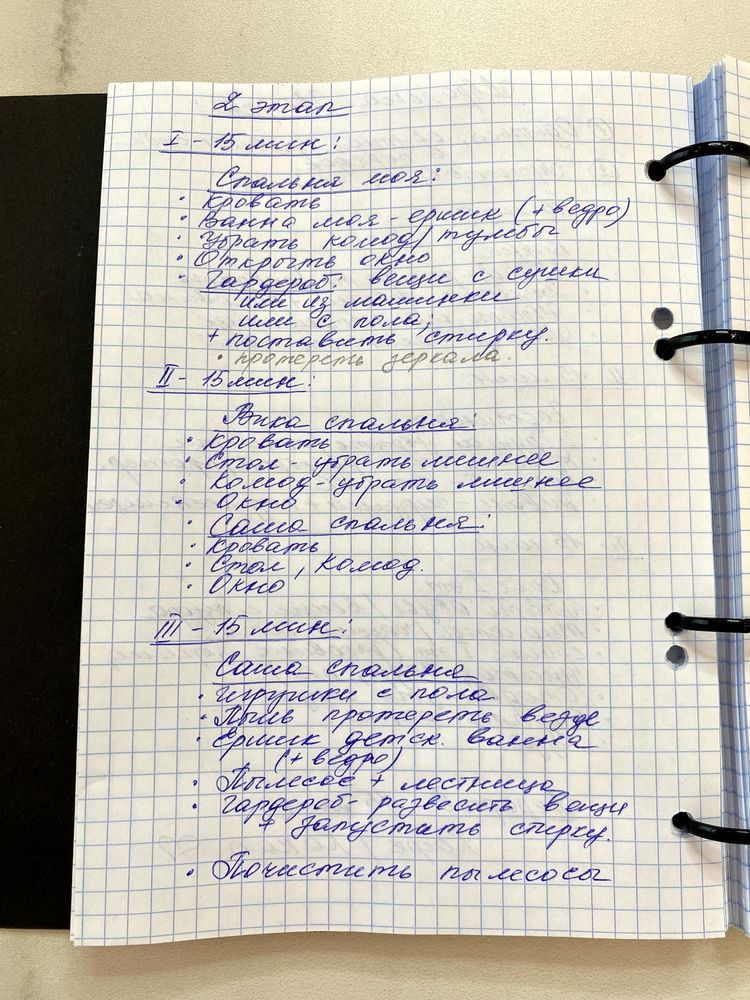 2 этап
I - 15 мин:
Спальня моя:
• Кровать
• Ванна моя - ершик (+ ведро)
• Убрать комод / тумбы
• Открыть окно
• Гардероб: вещи с сушки
или из машинки
или с пола;
+ поставить стирку.
• протереть зеркала.
II - 15 мин:
Вика спальня:
• Кровать
• Стол - убрать лишнее
• Комод - убрать лишнее
• Окно
• Саша спальня:
• Кровать
• Стол, Комод.
• Окно
III - 15 мин:
Саша спальня
• Игрушки с пола
• Пыль протереть везде
• Ершик детск. ванна
(+ ведро)
• Пылесос + лестница
• Гардероб - развесить вещи
+ запустить стирку.
• Почистить пылесосы